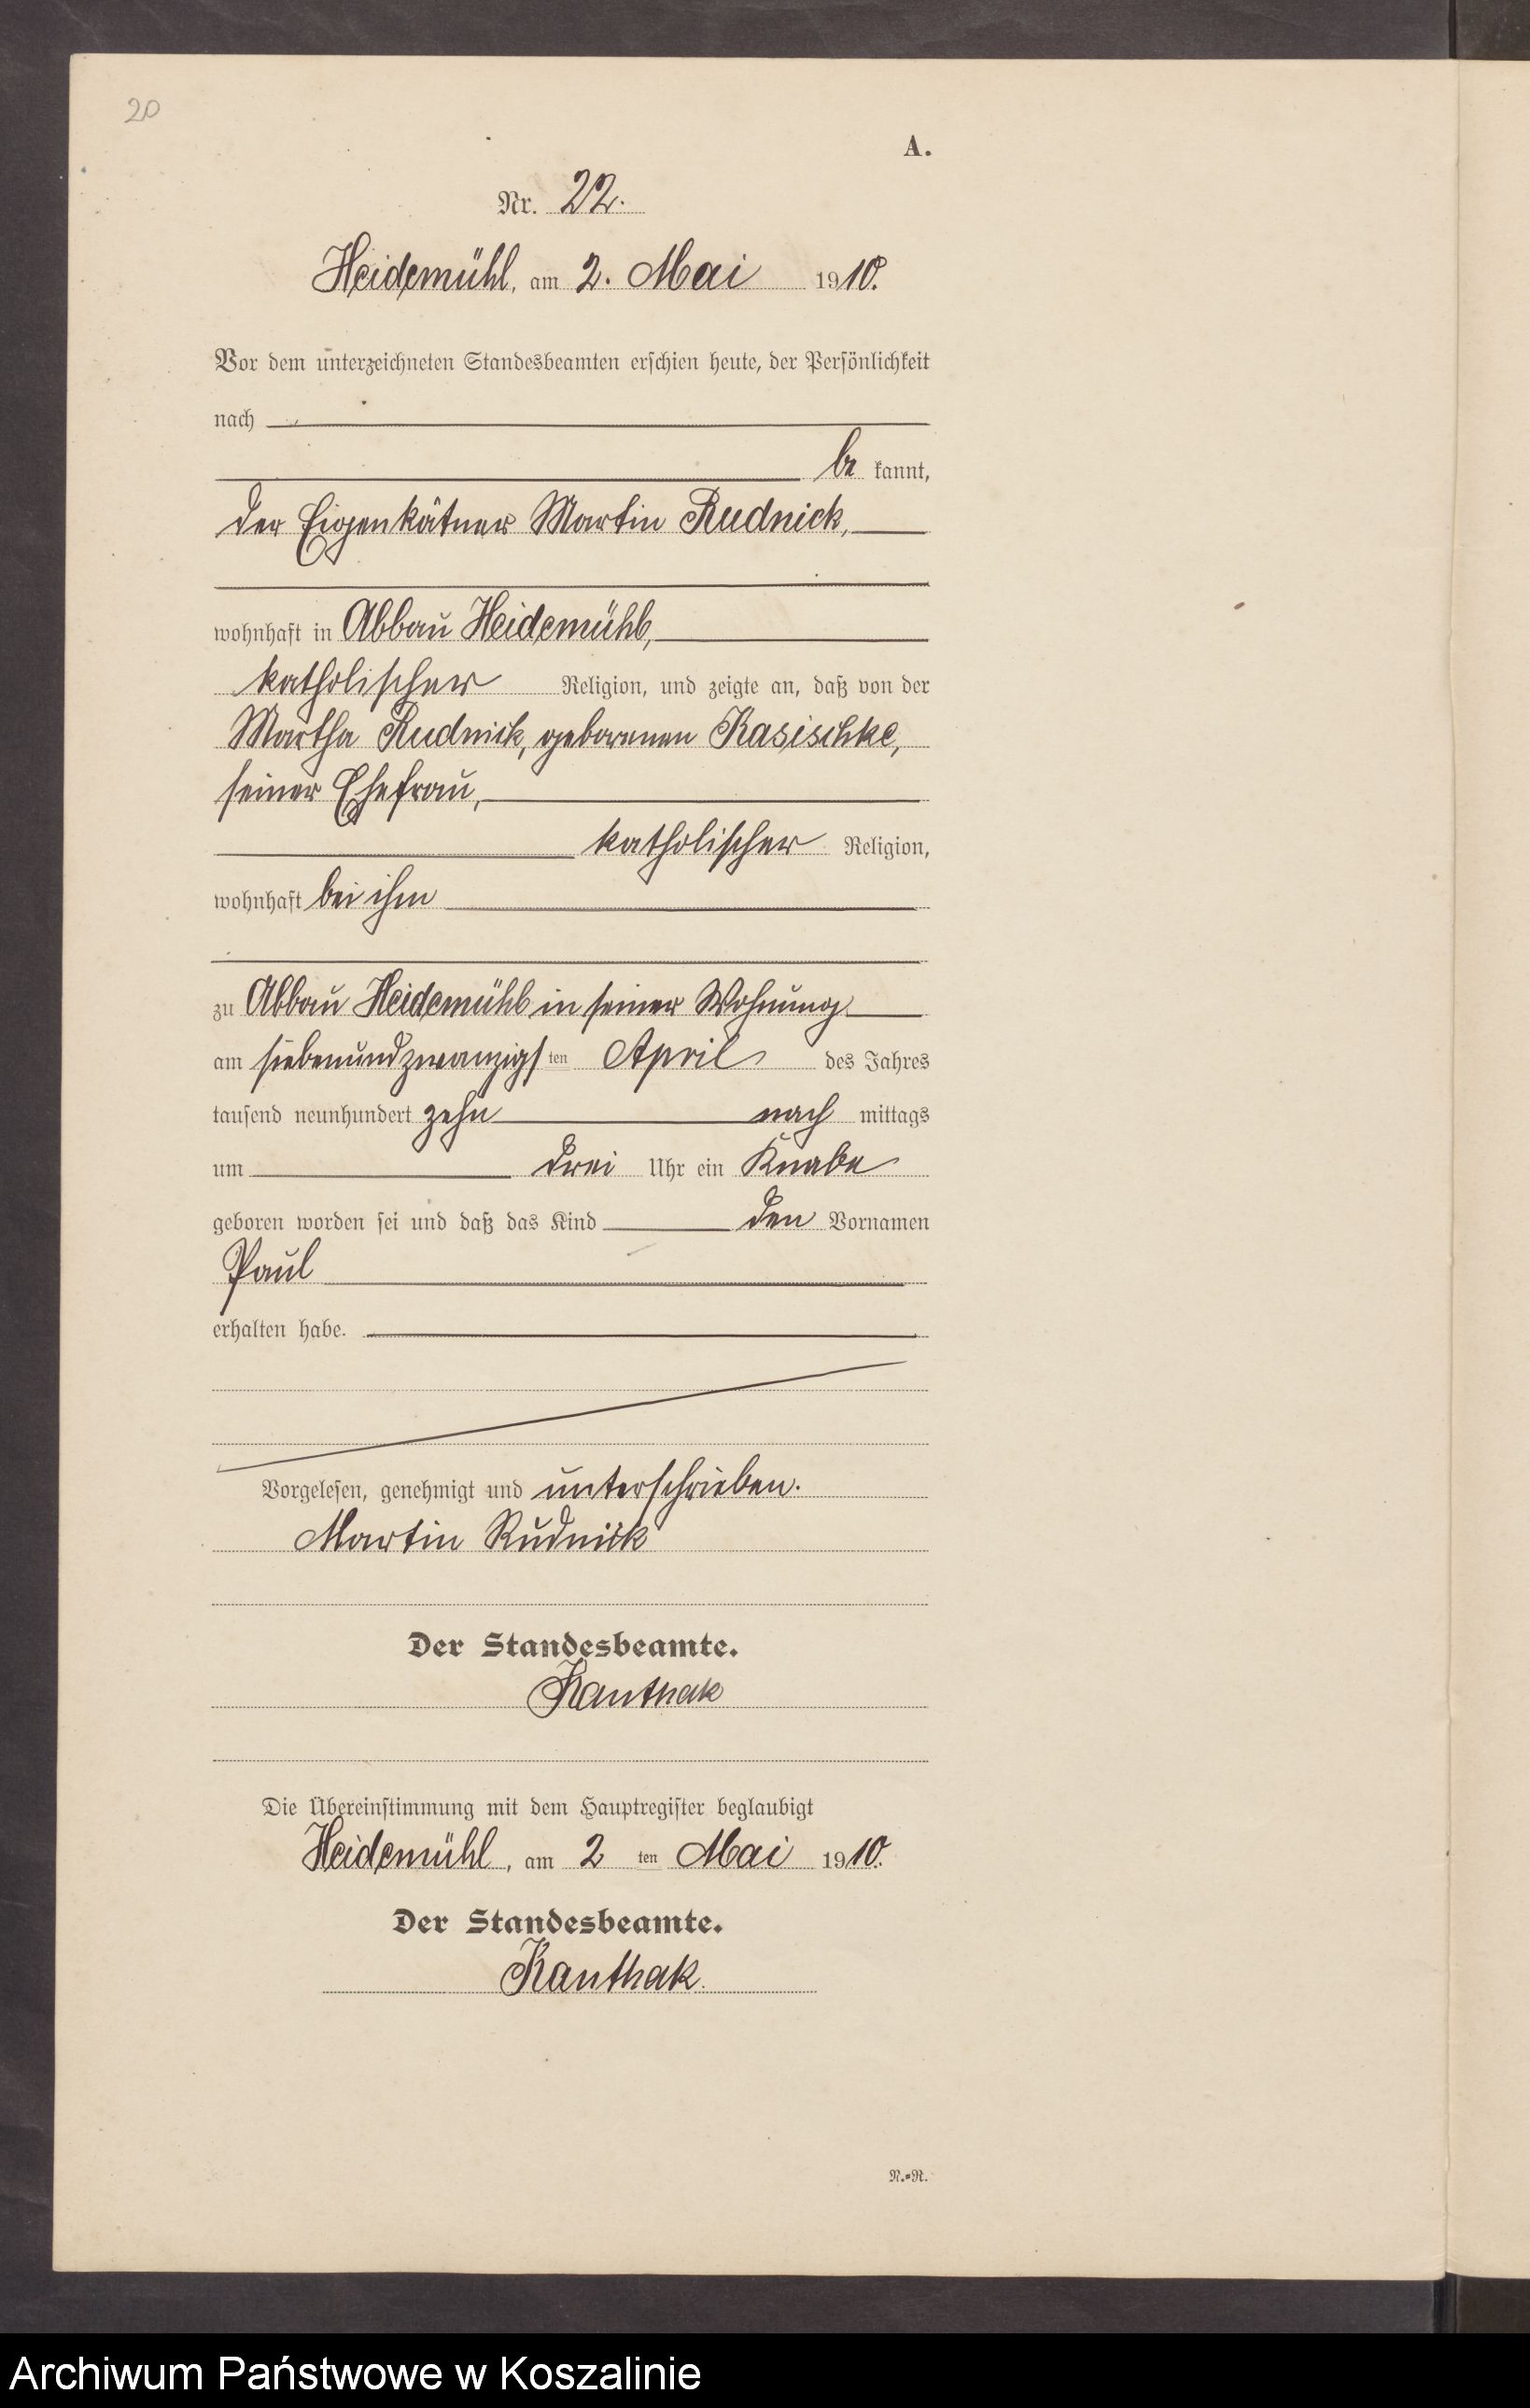 20
A.
Nr. 22.
Heidemühl, am 2. Mai 1910.
Vor dem unterzeichneten Standesbeamten erschien heute, der Persönlichkeit
nach
be kannt,
der Eigenkätner Martin Rudnick,
wohnhaft in Abbau Heidemühl,
katholischer Religion, und zeigte an, daß von der
Martha Rudnick, geborenen Kasischke,
seiner Ehefrau,
katholischer Religion,
wohnhaft bei ihm
zu Abbau Heidemühl in seiner Wohnung
am siebenundzwanzigsten April des Jahres
tausend neunhundert zehn nach mittags
um drei Uhr ein Knabe
geboren worden sei und daß das Kind den Vornamen
Paul
erhalten habe.
Vorgelesen, genehmigt und unterschrieben.
Martin Rudnick
Der Standesbeamte.
Kanthak
Die Übereinstimmung mit dem Hauptregister beglaubigt
Heidemühl, am 2 ten Mai 1910.
Der Standesbeamte.
Kanthak.
N.=R.
Archiwum Państwowe w Koszalinie